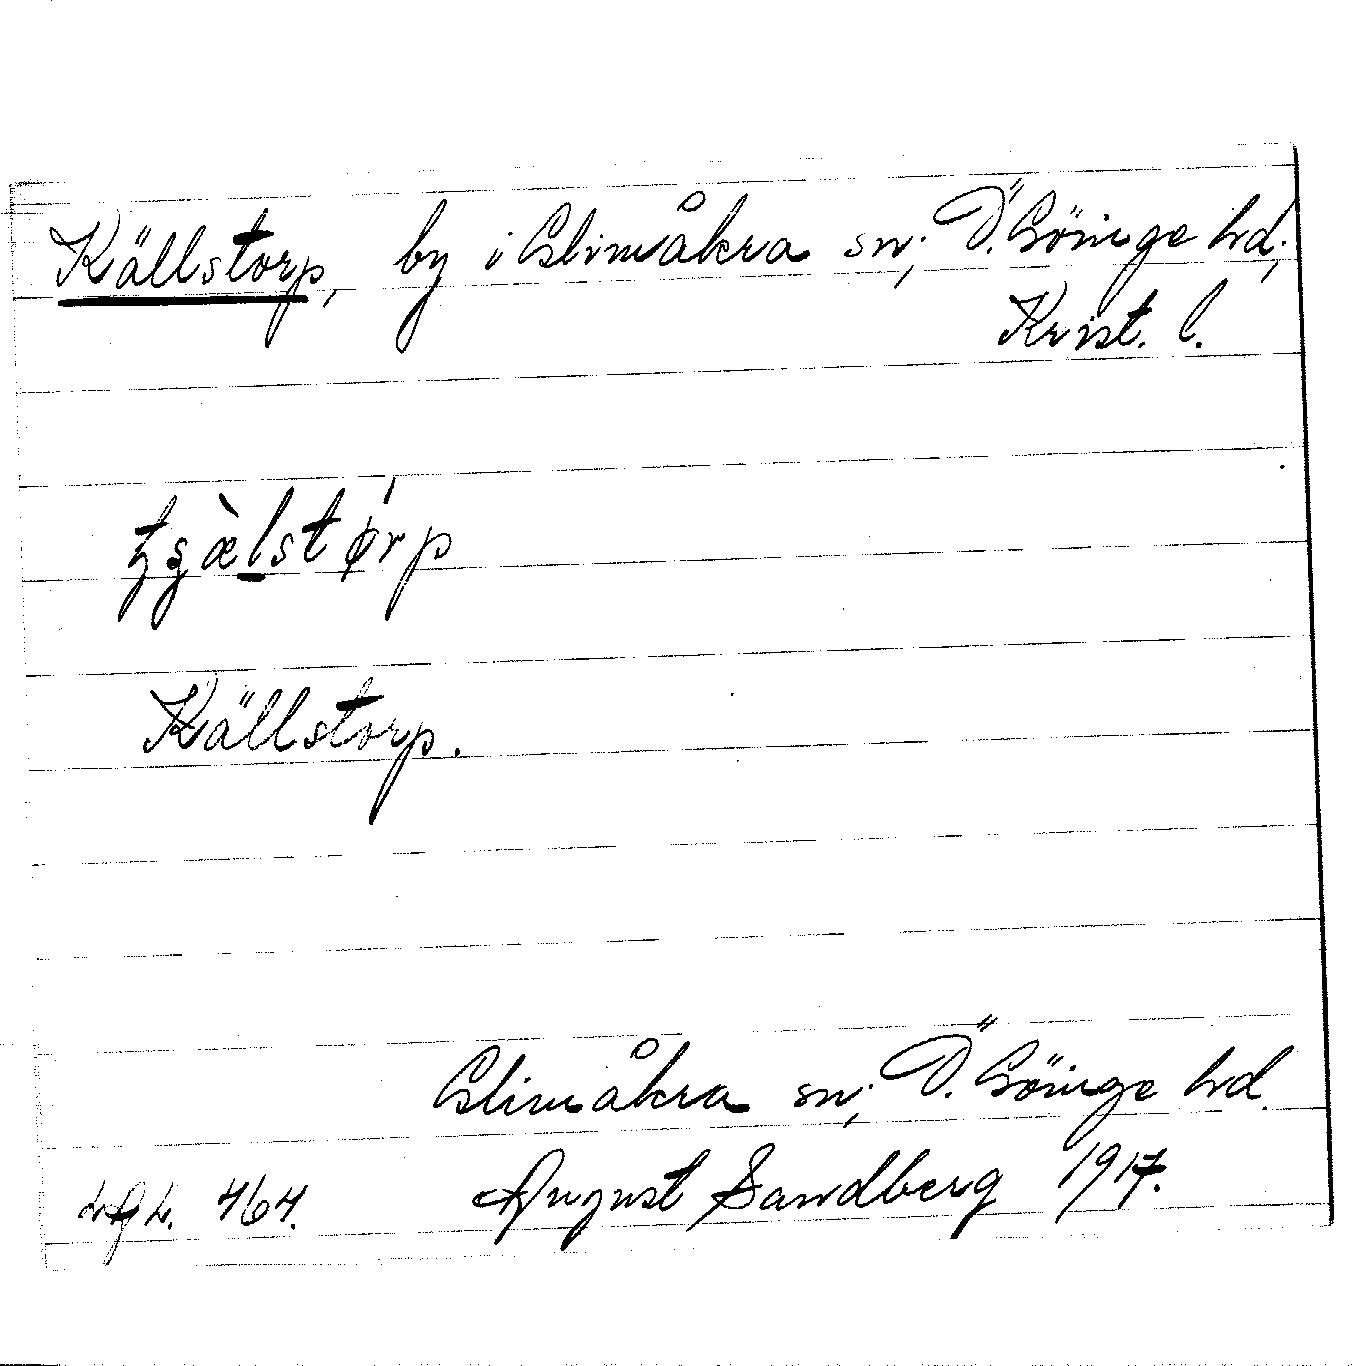 Källstorp, by i Glimåkra sn; Ö. Göinge hd;
Krist. l.
ʈʂæ̀lstǿrp
Källstorp.
Glimåkra sn; Ö. Göinge hd.
464. August Sandberg 1917.